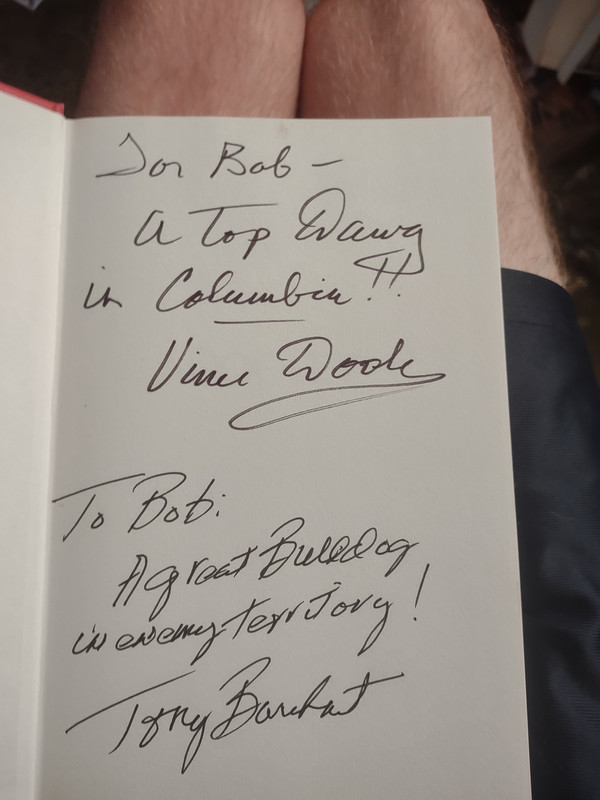 For Bob –
A Top Dawg
in Columbia!!
Vince Dooley
To Bob:
A great Bulldog
in enemy territory!
Tony Barnhart